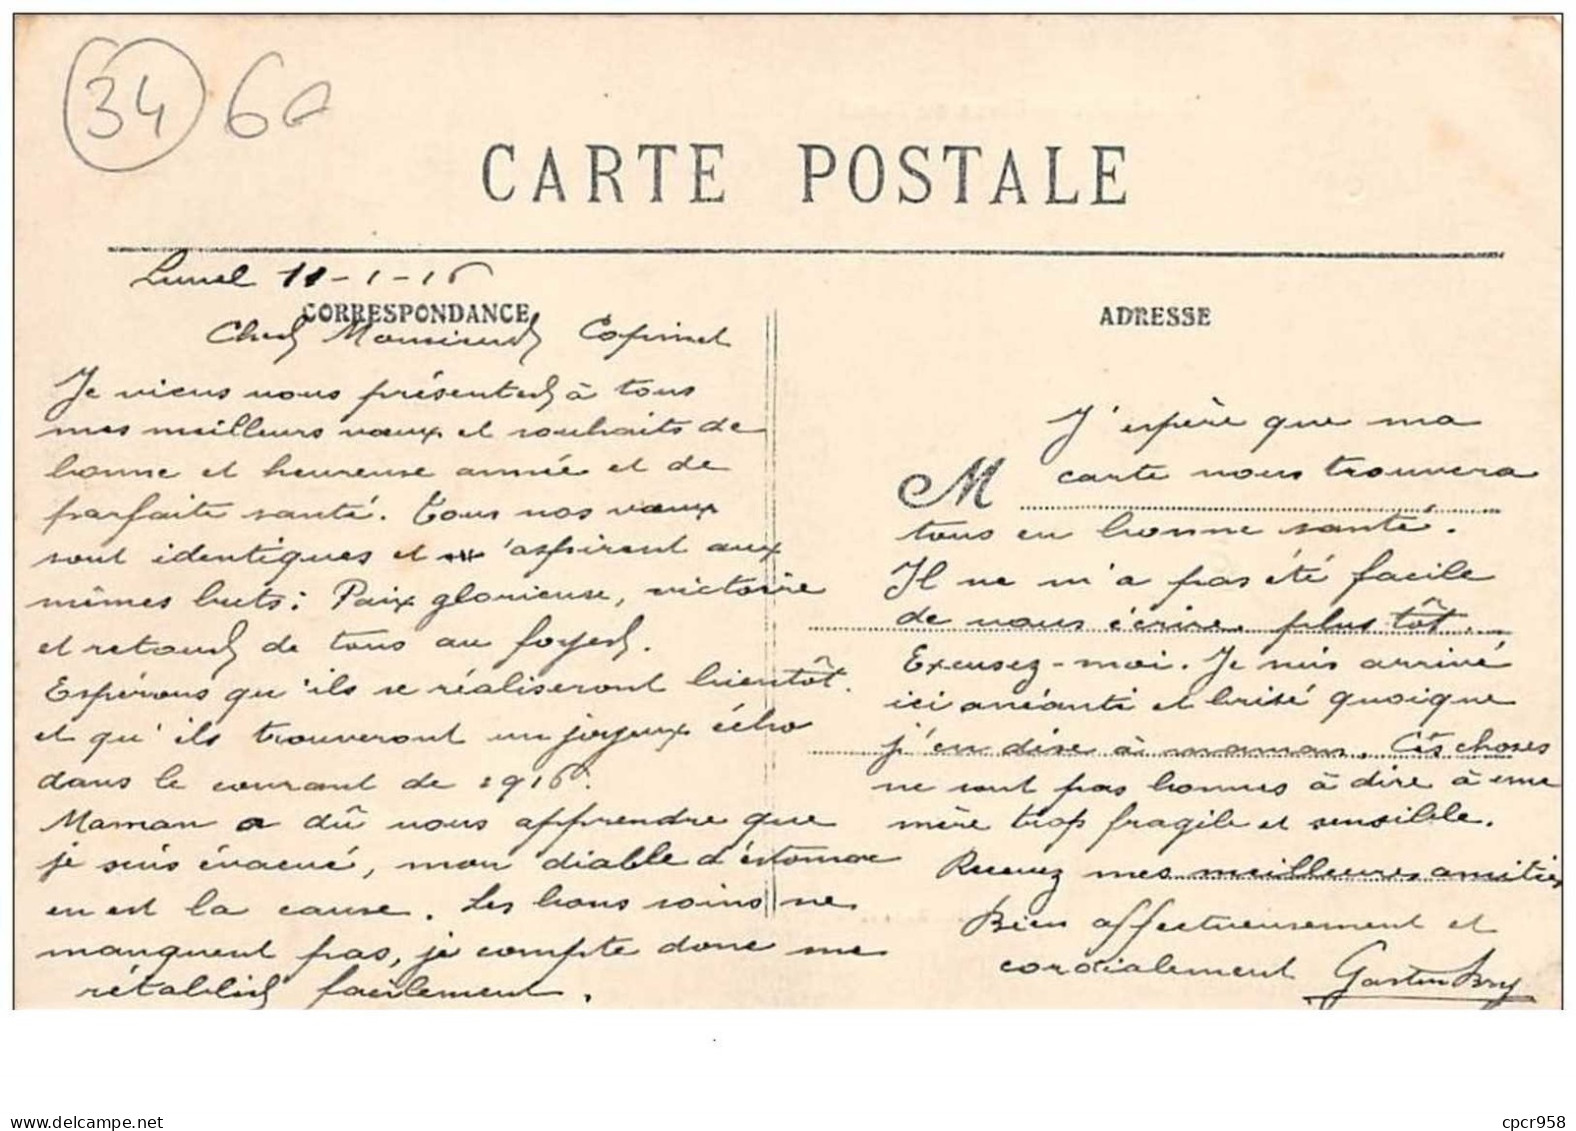 34 60
CARTE POSTALE
Lunel 11-1-16
CORRESPONDANCE
Cher Monsieur Copinet
Je viens vous présenter à tous
mes meilleurs vœux et souhaits de
bonne et heureuse année et de
parfaite santé. Tous nos vœux
sont identiques et aspirent aux
mêmes buts : Paix glorieuse, victoire
et retour de tous au foyer.
Espérons qu'ils se réaliseront bientôt.
et qu'ils trouveront un joyeux écho
dans le courant de 1916.
Maman a dû vous apprendre que
je suis évacué, mon diable d'estomac
en est la cause. Les bons soins ne
manquent pas, je compte donc me
rétablir facilement.
ADRESSE
J'espère que ma
M carte vous trouvera
tous en bonne santé.
Il ne m'a pas été facile
de vous écrire plus tôt.
Excusez-moi. Je suis arrivé
ici anéanti et brisé quoique
j'en dise à maman. Ces choses
ne sont pas bonnes à dire à une
mère trop fragile et sensible.
Recevez mes meilleures amitiés
Bien affectueusement et
cordialement Gaston
delcampe.net
cpcr958